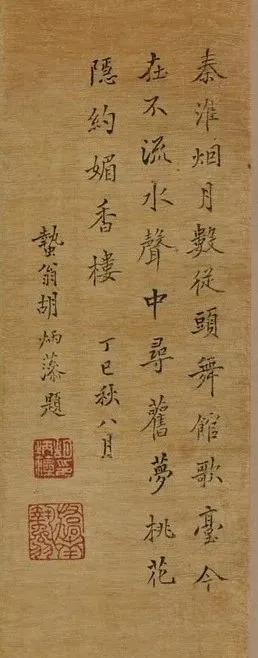 秦淮烟月數從頭舞館歌臺今
在不流水聲中尋舊夢桃花
隱約媚香樓
丁巳秋八月
蟄翁胡炳藻題